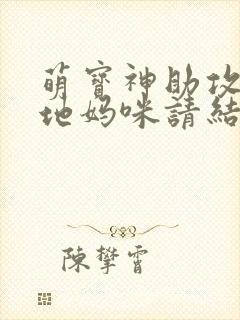 萌寶神助攻
地媽咪請結
陳攀霄